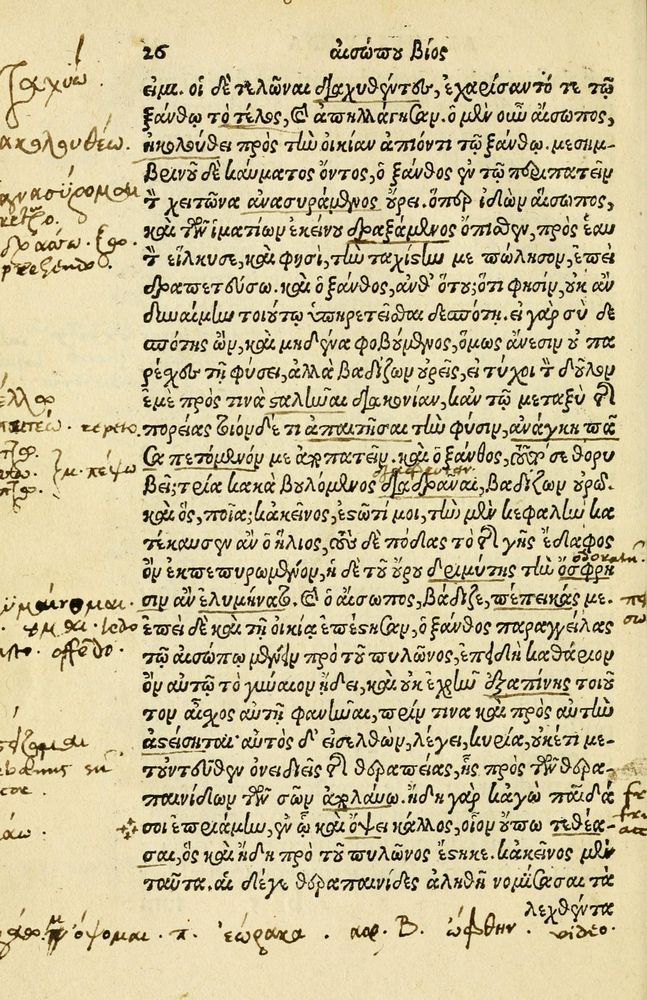 26 αἰσώπου Βίος
εἰμι. οἱ δὲ τελῶναι διαχυθέντες, ἐχαρίσαντό τε τῷ
ξάνθῳ τὸ τέλος, καὶ ἀπηλλάγησαν. ὁ μὲν οὖν αἴσωπος,
ἠκολούθει πρὸς τὴν οἰκίαν ἀπιόντι τῷ ξάνθῳ. μεσημ-
βρινοῦ δὲ καύματος ὄντος, ὁ ξάνθος ἐν τῷ περιπατεῖν
τὸν χιτῶνα ἀνασυράμενος οὔρει. ὅπερ ἰδὼν αἴσωπος,
καὶ τῶν ἱματίων ἐκείνου δραξάμενος ὄπισθεν, πρὸς ἑαυ
τὸν εἵλκυσε, καὶ φησὶ, τὴν ταχίστην με πώλησον, ἐπεὶ
δραπετεύσω. καὶ ὁ ξάνθος, ἀνθ' ὅτου; ὅτι φησὶν, οὐκ ἂν
δυναίμην τοιούτῳ ὑπηρετεῖσθαι δεσπότῃ. εἰ γὰρ σὺ δε
σπότης ὢν, καὶ μηδένα φοβούμενος, ὅμως ἄνεσιν οὐ πα
ρέχεις τῇ φύσει, ἀλλὰ βαδίζων οὐρεῖς, εἰ τύχοι τὸν δοῦλον
ἐμὲ πρὸς τινὰ σταλῆναι διακονίαν, κἀν τῷ μεταξὺ τῆς
πορείας τοιόνδε τι ἀπαιτῆσαι τὴν φύσιν, ἀνάγκη πᾶ
σα πετόμενόν με ἀποπατεῖν. καὶ ὁ ξάνθος, τοῦτό σε θορυ
βεῖ; τρία κακὰ βουλόμενος διαδρᾶναι, βαδίζων οὐρῶ.
καὶ ὃς, ποῖα; κἀκεῖνος, ἑστῶτί μοι, τὴν μὲν κεφαλὴν κα
τέκαυσεν ἂν ὁ ἥλιος, τοὺς δὲ πόδας τὸ τῆς γῆς ἔδαφος
ὂν ἐκπεπυρωμένον, ἡ δὲ τοῦ οὔρου δριμύτης τὴν ὄσφρη
σιν ἂν ἐλυμήνατο. καὶ ὁ αἴσωπος, βάδιζε, πέπεικάς με.
ἐπεὶ δὲ καὶ τῇ οἰκίᾳ ἐπέστησαν, ὁ ξάνθος παραγγείλας
τῷ αἰσώπῳ μένειν πρὸ τοῦ πυλῶνος, ἐπειδὴ καθάριον
ὂν αὐτῷ τὸ γύναιον ᾔδει, καὶ οὐκ ἐχρῆν ἐξαπίνης τοιοῦ
τον αἶσχος αὐτῇ φανῆναι, πρίν τινα καὶ πρὸς αὐτὴν
ἀστεΐσηται· αὐτὸς δ' εἰσελθὼν, λέγει, κυρία, οὐκέτι με-
τοὐντεῦθεν ὀνειδιεῖς τῆς θεραπείας, ἧς πρὸς τῶν θερα-
παινίδων τῶν σῶν ἀπολαύω. ἤδη γὰρ κἀγὼ παῖδά
σοι ἐπριάμην, ἐν ᾧ καὶ ὄψει κάλλος, οἷον οὔπω τεθέα-
σαι, ὃς καὶ ἤδη πρὸ τοῦ πυλῶνος ἕστηκε. κἀκεῖνος μὲν
ταῦτα. αἱ δέ γε θεραπαινίδες ἀληθῆ νομίσασαι τὰ
λεχθέντα
ὄψομαι . π. ἑώρακα . ἀορ. Β. ὤφθην . video .
ἀκολουθέω.
prehendo.
offēdo.